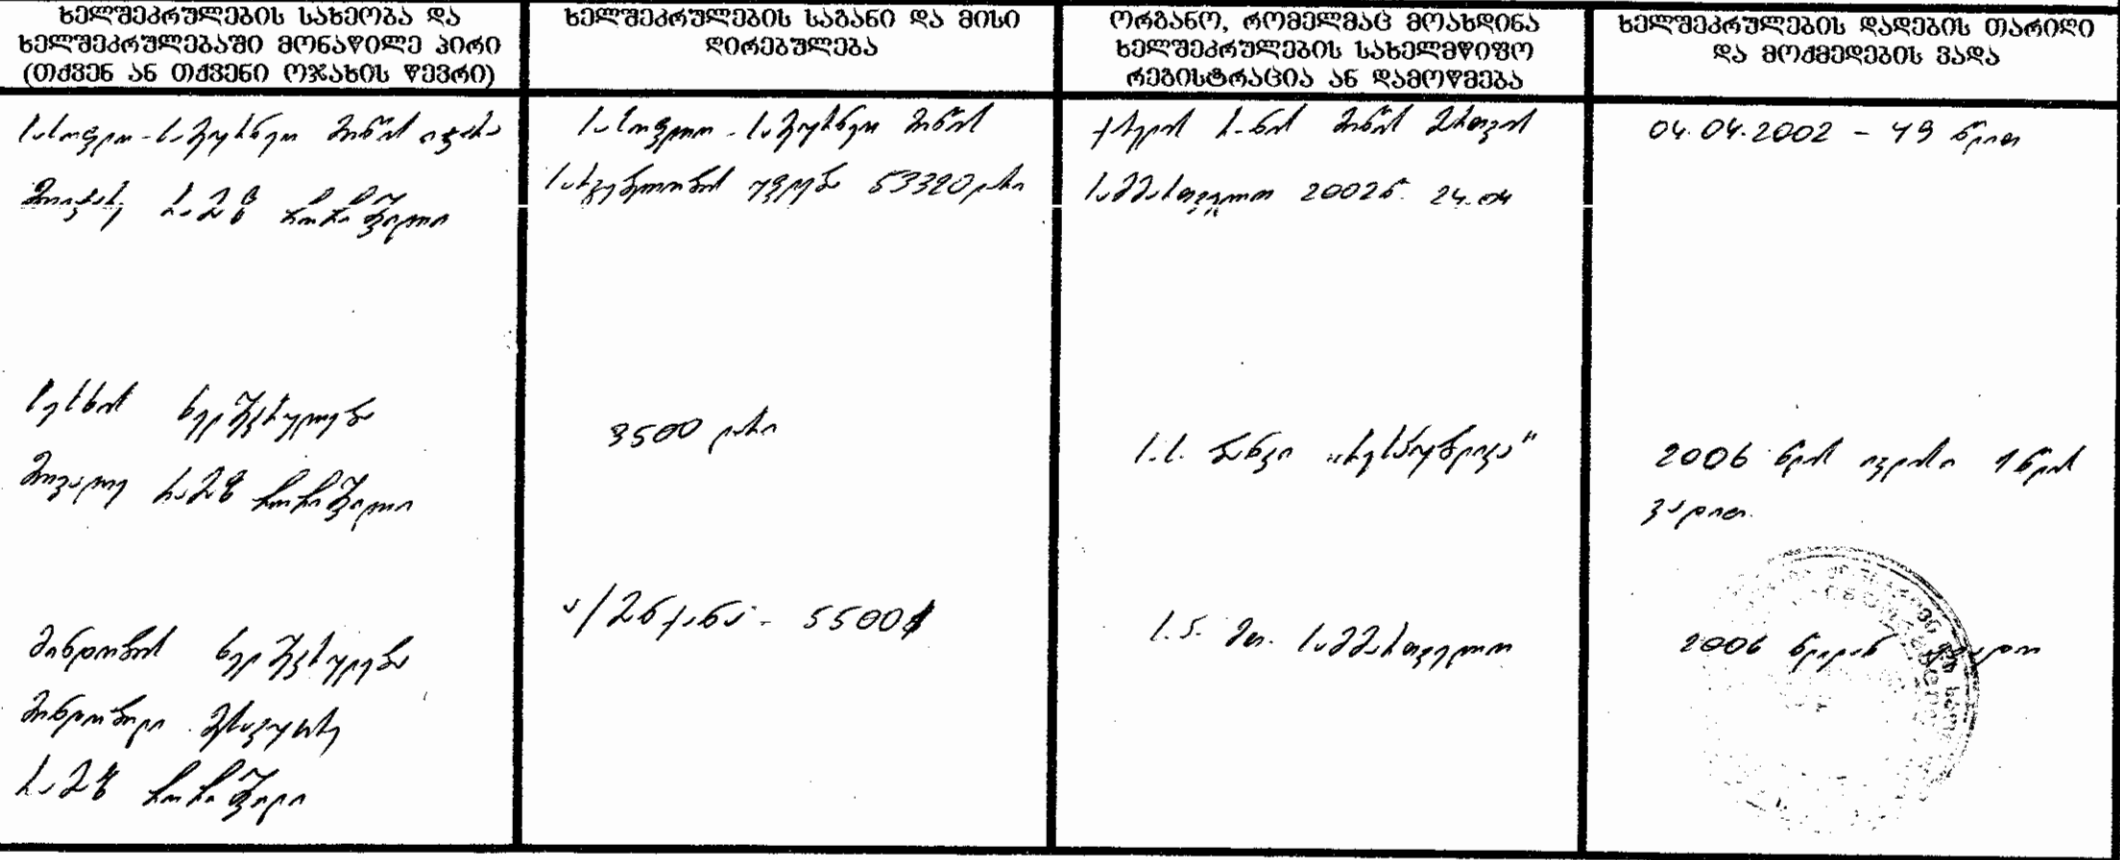 ხელშეკრულების სახეობა და
ხელშეკრულებაში მონაწილე პირი
(თქვენ ან თქვენი ოჯახის წევრი)
ხელშეკრულების საგანი და მისი
ღირებულება
ორგანო, რომელმაც მოახდინა
ხელშეკრულების სახელმწიფო
რეგისტრაცია ან დამოწმება
ხელშეკრულების დადების თარიღი
და მოქმედების ვადა
სასოფლო-სამეურნეო მიწის იჯარა
მოიჯარე რამაზ ჩოჩიშვილი
სასოფლო-სამეურნეო მიწის
საკუთრების უფლება 53320 ლარი
ქარელის რ-ნის მიწის მართვის
სამმართველო 2002წ. 24.04
04.04.2002 - 49 წლით
სესხის ხელშეკრულება
მოვალე რამაზ ჩოჩიშვილი
3500 ლარი
ს.ს. ბანკი „რესპუბლიკა"
2006 წლის ივლისი 1 წლის
ვადით.
მინდობის ხელშეკრულება
მინდობილი მესაკუთრე
რამაზ ჩოჩიშვილი
ა/მანქანა - 5500$
ს.ს. მთ. სამმართველო
2006 წლიდან